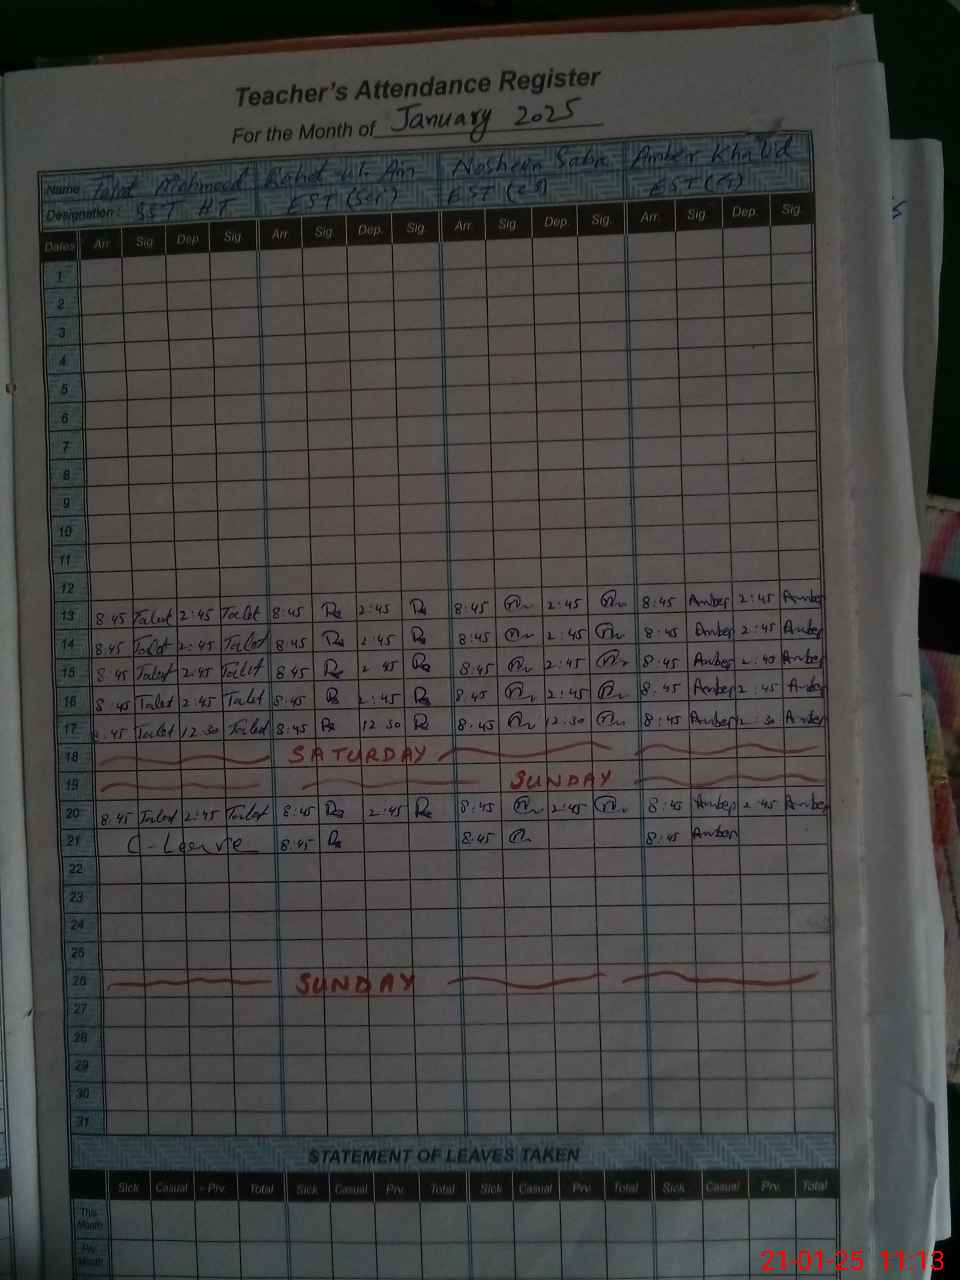 Teacher's Attendance Register
For the Month of January 2025
Name Talat Mehmood Rahat ul Ain Nosheen Saba Amber Khalid
Designation: SST HT EST (Sci) EST
Dates Arr. Sig. Dep. Sig. Arr. Sig. Dep. Sig. Arr. Sig. Dep. Sig. Arr. Sig. Dep. Sig.
1
2
3
4
5
6
7
8
9
10
11
12
13 8:45 Talat 2:45 Talat 8:45 2:45 8:45 2:45 8:45 Amber 2:45 Amber
14 8:45 Talat 2:45 Talat 8:45 2:45 8:45 2:45 8:45 Amber 2:45 Amber
15 8:45 Talat 2:45 Talat 8:45 2 45 8:45 2:45 8:45 Amber Amber
16 8 45 Talat 2:45 Talat 8:45 2:45 8:45 2:45 8:45 Amber 2:45 Amber
17 8:45 Talat 12 30 Talat 8:45 12 30 8:45 12:30 8:45 Amber 12:30 Amber
18 SATURDAY
19 SUNDAY
20 8:45 Talat 2:45 Talat 8:45 2:45 8:45 2:45 8:45 Amber 2:45 Amber
21 C-Leave 8:45 8:45 8:45 Amber
22
23
24
25
26 SUNDAY
27
28
29
30
31
STATEMENT OF LEAVES TAKEN
Sick Casual Prv. Total Sick Casual Prv. Total Sick Casual Prv. Total Sick Casual Prv. Total
This Month
Prv. Month
21-01-25 11:13